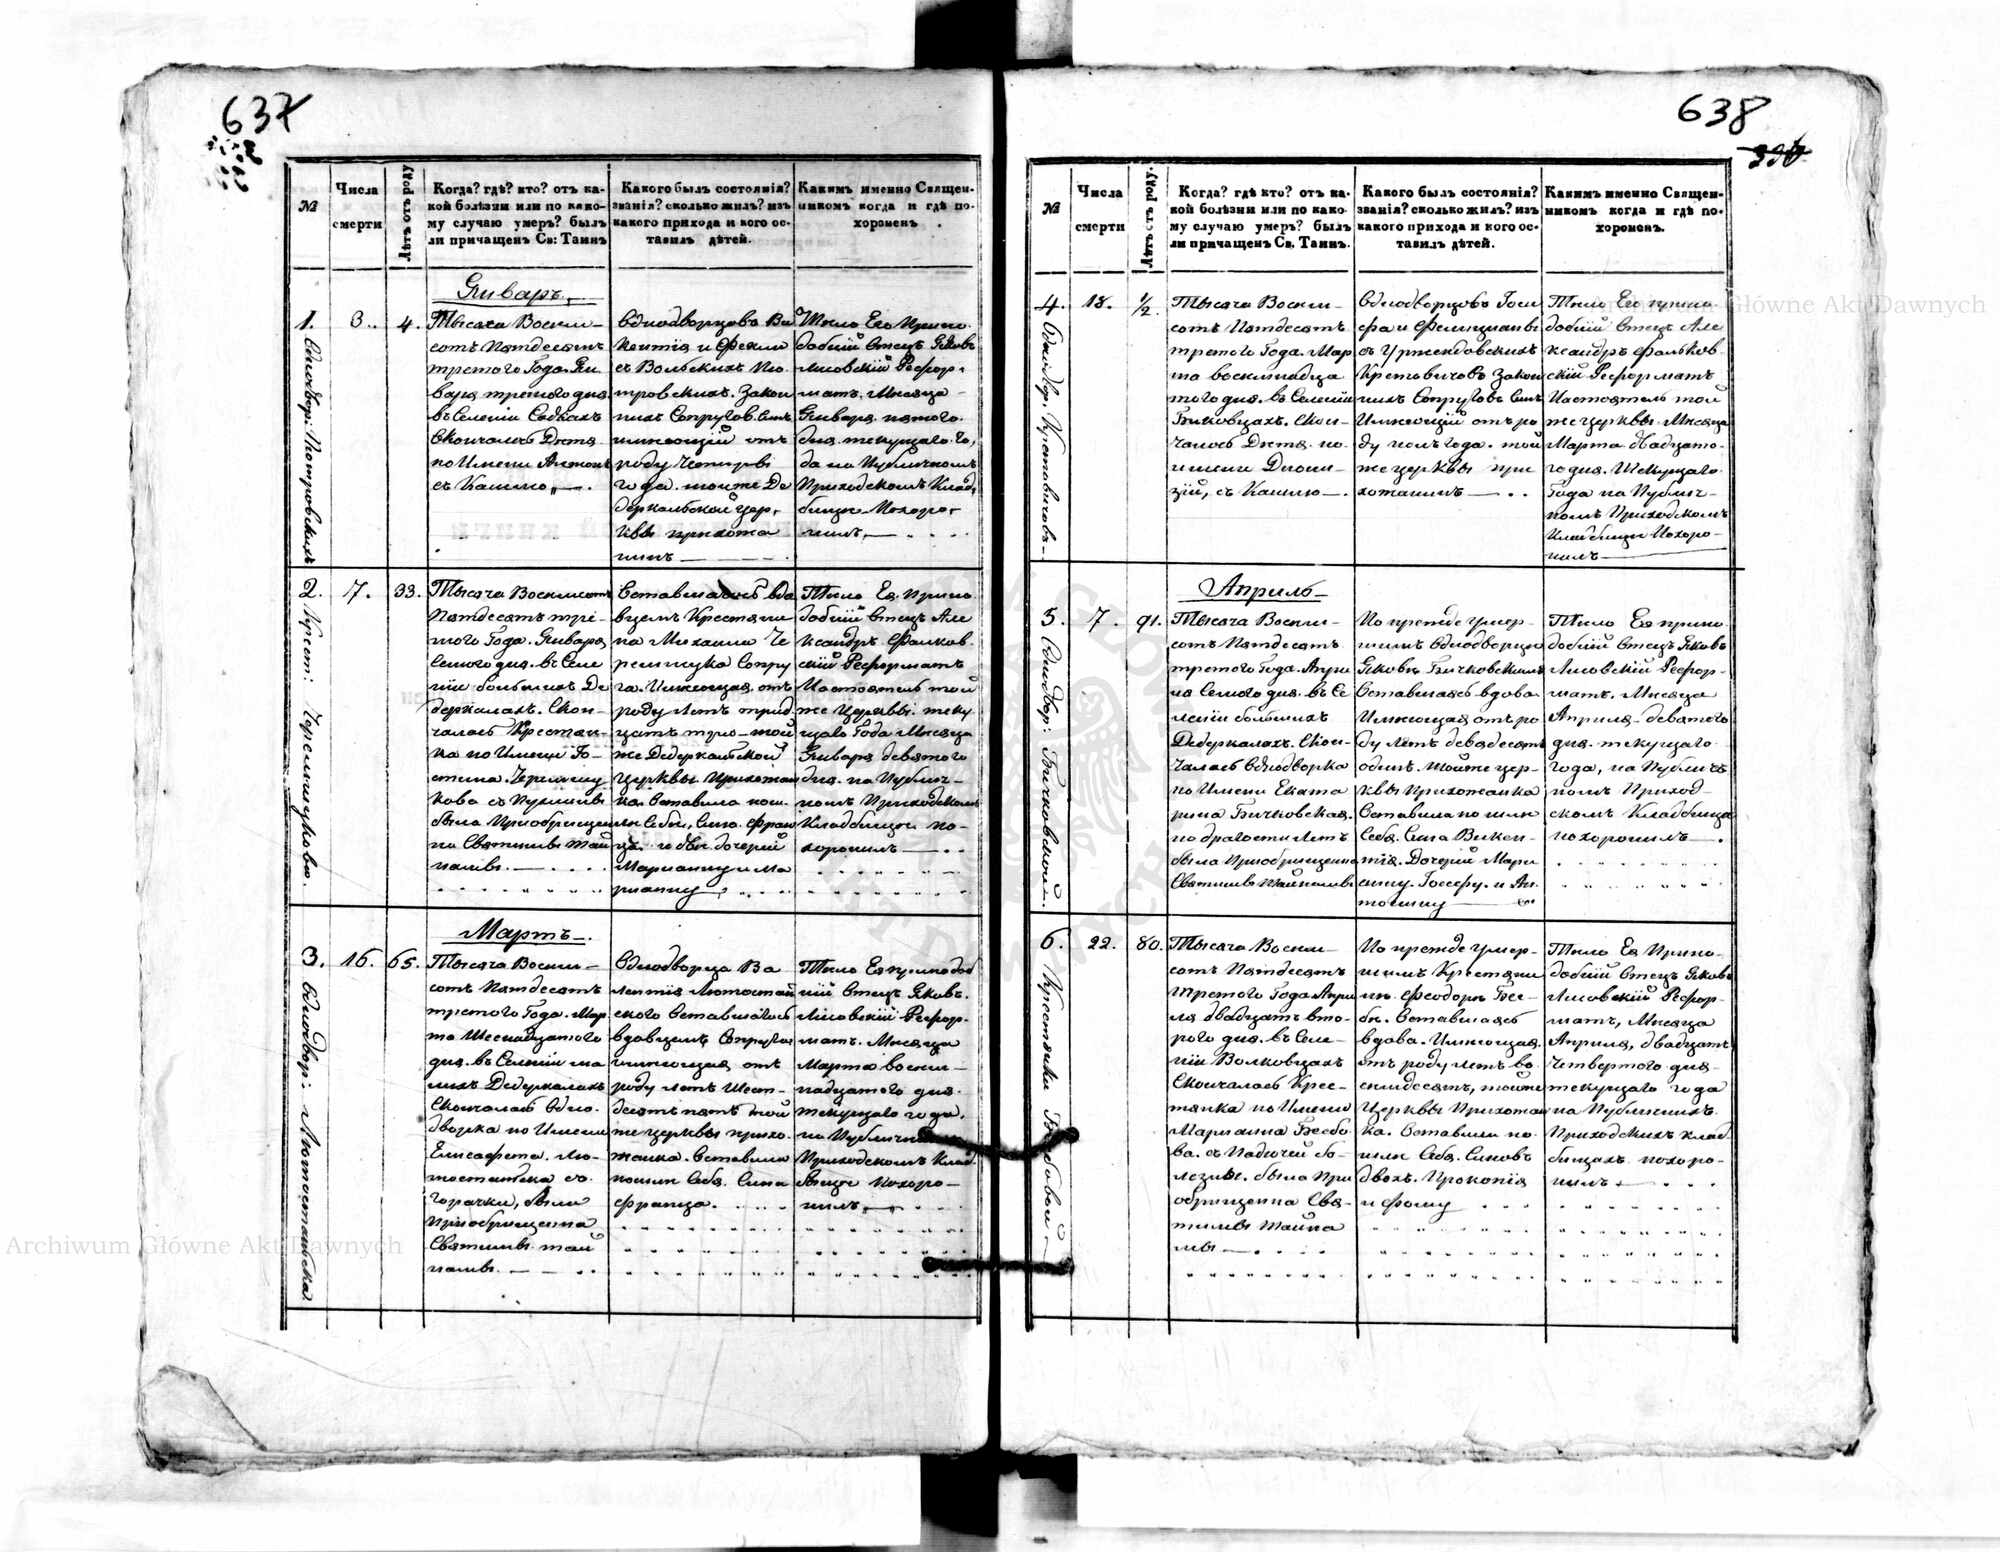 637
№
Числа
смерти
Лѣтъ отъ роду
Когда? гдѣ? кто? отъ ка-
кой болѣзни или по како-
му случаю умеръ? былъ
ли причащенъ Св: Таинъ
Какого былъ состоянія?
званія? сколько жилъ? изъ
какого прихода и кого ос-
тавилъ дѣтей.
Какимъ именно Священ-
никомъ когда и гдѣ по-
хороненъ.
Январь
1.
Однодвор: Піотровскихъ
3.
4.
Тысяча Восем-
сотъ Пятдесятъ
третого Года Ян
варя третого дня
въ Селеніи Садкахъ
Скончалось Дитя
по Имени Антонъ
съ Кашлю
Однодворцовъ Ви
кентія и Феклы
съ Вольскихъ Піо
тровскихъ. Закон
ныхъ Супругов. Сынъ
имѣющій отъ
роду Четыры
года. тойже Де
деркальской цер-
квы прихожа
нинъ
Тѣло Его Препо
добный Отецъ Яковъ
Лисовскій Рефор-
матъ. Мѣсяца
Января пятого
дня текущаго Го-
да на Публичномъ
Приходскомъ Клад-
бищѣ Похоро-
нилъ
2.
Крест: Черешнукова.
7.
33.
Тысяча Восемсотъ
Пятдесятъ тре-
того Года. Января
Семого дня. въ Селе
ніи большихъ Де
деркалахъ. Скон-
чалась Крестьян-
ка по Имени
была Приобрщен
на Святымы Тай
намы.
Оставшагось вдо
вцемъ Крестяни
на Михаила Че
решнука Супру
га. Имѣющая отъ
роду Летъ трид
цатъ три той
же Дедеркальской
церквы Прихожан
ка. Оставила пос-
лѣ Себя, Сына Фран
ца. и двѣ дочерей
Марианну и Ма
рианну
Тѣло Ея Препо
добный Отецъ Але
ксандръ Фалков
скій Реформатъ
Настоятель той
же Церквы. теку
щаго Года Мѣсяца
Января девятого
дня. на Публич-
номъ Приходскомъ
Кладбищѣ по-
хоронилъ
Мартъ
3.
Однодвор: Лютостанска
16.
65.
Тысяча Восем-
сотъ Пятдесятъ
третого Года. Мар
та Шеснадцатого
дня. въ Селеніи ма
лыхъ Дедеркалахъ
Скончалась Одно-
дворка по Имени
Елисафета. Лю-
тостанска съ
горачки, была
Приобрщенна
Святымы тай
намы.
Однодворца Ва
лентія Лютостан
ского Оставшагось
вдовцемъ Супруга
имѣющая отъ
роду летъ Шест-
десятъ пять той
же церквы прихо-
жанка. Оставила
послѣ Себя. Сына
Франца.
Тѣло Ея преподоб
ній Отецъ Яковъ.
Лисовскій Рефор-
матъ. Мѣсяца
Марта восем-
надцатого дня
текущаго года.
на Публичномъ
Приходскомъ Клад-
бищѣ Похоро-
нилъ
638
№
Числа
смерти
Лѣтъ отъ роду.
Когда? гдѣ кто? отъ ка-
кой болѣзни или по како-
му случаю умеръ? былъ
ли причащенъ Св. Таинъ.
Какого былъ состоянія?
званія? сколько жилъ? изъ
какого прихода и кого ос-
тавилъ дѣтей.
Какимъ именно Священ-
никомъ когда и гдѣ по-
хороненъ.
4.
Однодвор. Кретовичовъ
18.
1/2.
Тысяча Восем-
сотъ Пятдесятъ
третого Года. Мар
та восемнадца
того дня. въ Селеніи
Биковцахъ. Скон-
чалось Дитя. по-
имени Диони-
зій, съ Кашлю
Однодворцовъ Іоси
фа и Фелиціаны
съ Уршендовскихъ
Кретовичовъ Закон
ныхъ Супруговъ Сынъ
Имѣющій отъ ро
ду полъ года. той
же церквы при
хожанинъ
Тѣло Его препо
добній Отецъ Але
ксандръ Фальков
скій Реформатъ
Настоятель той
же церквы. Мѣсяца
Марта двадцато-
го дня. Текущаго
Года на Публич-
номъ Приходскомъ
Кладбищѣ Похоро-
нилъ
Апрель
5.
Однодвор: Бичковской.
7.
91.
Тысяча Восем-
сотъ Пятдесятъ
третого Года. Апри
ля Семого дня. въ Се
леніи большихъ
Дедеркалахъ. Скон-
чалась Однодворка
по Имени Екате
рина Бичковская.
по драгости летъ
была Приобрщенна
Святымы Тайнамы
По прежде умер-
шимъ Однодворцы
Яковѣ Бичковскимъ
Оставшаясь вдова.
Имѣющая отъ ро
ду летъ девядесятъ
одинъ. тойже цер-
квы Прихожанка
Оставила послѣ
Себя. Сына Викен-
тія. Дочерій Мари
анну. Іосефу. и Ан-
тонину
Тѣло Ея препо
добній Отецъ Яковъ
Лисовскій Рефор-
матъ. Мѣсяца
Апреля. девятого
дня. текущаго
года, на Публич
номъ Приход-
скомъ Кладбищѣ
похоронилъ
6.
Крестянки
22.
80.
Тысяча Восем-
сотъ Пятдесятъ
Третого Года Апри
ля двадцатъ вто-
рого дня. въ Селе-
ніи Волковцахъ
Скончалась Крес-
тянка по Имени
Марианна
ва. съ Падучей бо-
лезны. была При
обрищенна Свя-
тымы Тайна
мы
По прежде умер-
шимъ Крестяни
нѣ. Феодорѣ
Оставшаясь
вдова. Имѣющая.
отъ роду летъ во
семдесятъ, тойже
Церквы Прихожан
ка. Оставила по-
слѣ Себя. Сыновъ
двохъ. Прокопія
и Фому
Тѣло Ея Препо-
добній Отецъ Яковъ
Лисовскій Рефор-
матъ, Мѣсяца
Апреля, двадцатъ
Четвертого дня
текущаго года
на Публичныхъ
Приходскихъ клад
бищахъ похоро-
нилъ
Archiwum Główne Akt Dawnych
Archiwum Główne Akt Dawnych